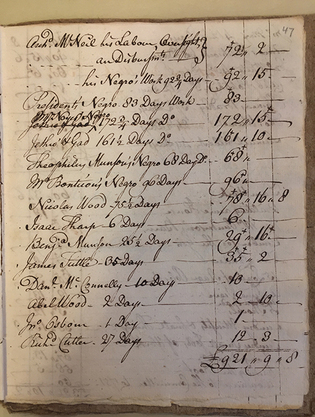 47
Archd. McNeil his Labour, Oversight, & an Disbursmts 72 " 2
his Negro's Work 92 3/4 Days 92 " 15
President's Negro 83 Days Work 83 "
172 3/4 Days Do 172 " 15
John Gad 161 1/2 Days Do 161 " 10
Theophilus Munson's, Negro 68 Days Do 68 "
Mr. Bontecou's, Negro 96 Days 96 "
Nicolas Wood 16 " 8
Isaac Tharp 6 Days 6 "
Munson Days 29 " 16
James Tuttle 35 Days 35 " 2
Danl. McConnelly 10 Days 10
Abel Wood 2 Days 2 10
Jno. Osborn 1 Day 1
Richd. Cutler 27 Days 19 3
£921 " 9 " 8